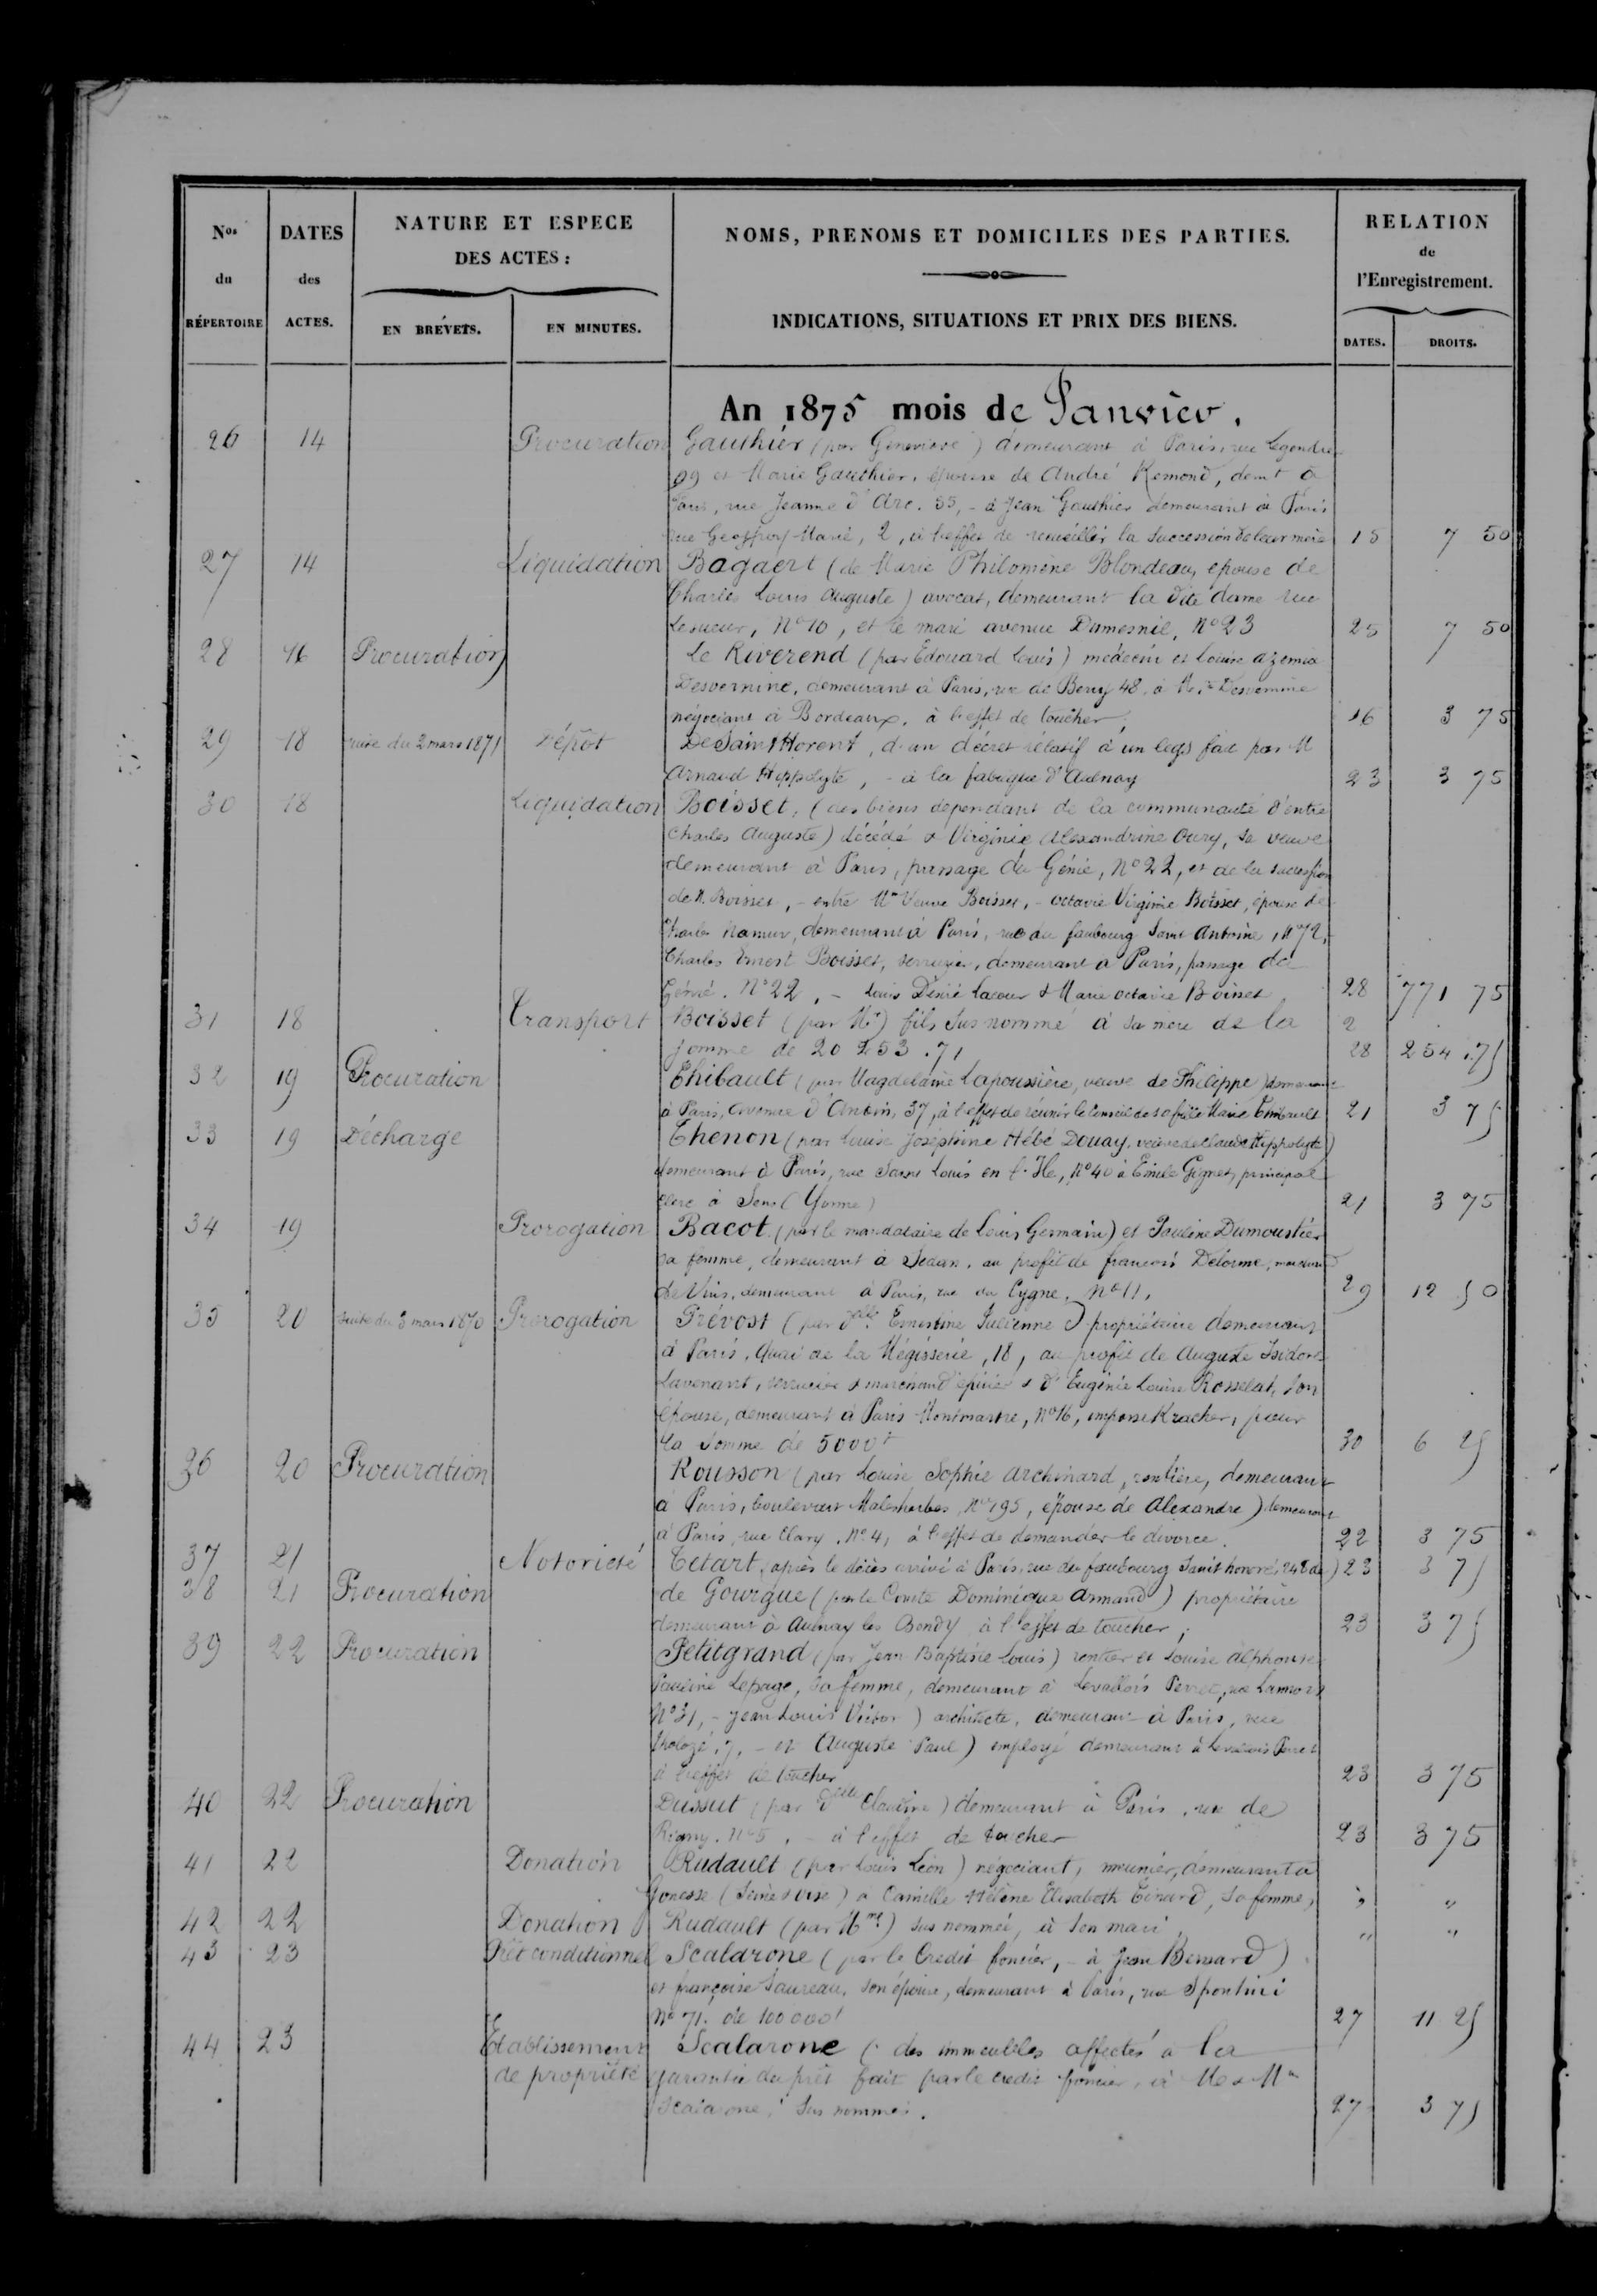 Nos du RÉPERTOIRE
DATES des ACTES.
NATURE ET ESPECE DES ACTES :
EN BREVETS.
EN MINUTES.
NOMS, PRENOMS ET DOMICILES DES PARTIES.
INDICATIONS, SITUATIONS ET PRIX DES BIENS.
RELATION de l'Enregistrement.
DATES.
DROITS.
An 1875 mois de Janvier.
26 14 Procuration Gauthier (par Geneviève) demeurant à Paris, rue Legendre
99 et Marie Gauthier, épouse de André Remond, demt à
Paris, rue Jeanne d'Arc. 55, - à Jean Gauthier demeurant à Paris
rue Geoffroy Marie, 2, à l'effet de recueillir la succession de leur mère 15 7 50
27 14 Liquidation Bagaert (de Marie Philomène Blondeau, epouse de
Charles Louis Auguste) avocat, demeurant la dite dame rue
Lesueur, No 10, et le mari avenue Dumesnil, No 23 25 7 50
28 16 Procuration Le Riverend (par Edouard Louis) médecin et Louise Azemia
Desvernine, demeurant à Paris, rue de Berry 48, à Desvernine
négociant à Bordeaux, à l'effet de toucher 16 3 75
29 18 suite du 2 mars 1871 Dépôt De Saint Florent, d'un décret rélatif à un legs fait par M
Arnaud Hippolyte, - à la fabrique d'Aulnay 23 3 75
30 18 Liquidation Boisset, (des biens dependant de la communauté d'entre
Charles Auguste) décédé & Virginie Alexandrine Oury, sa veuve
demeurant à Paris, passage du Génie, No 22, et de la succession
de M. Boisset, - entre Me Veuve Boisset, - Octavie Virginie Boisset, épouse de
Charles Namur, demeurant à Paris, rue du faubourg Saint Antoine, No 72,
Charles Ernest Boisset, serrurier, demeurant à Paris, passage du
Génie. No 22, - Louis Désiré Lacour & Marie Octavie Boisset 28 771 75
31 18 Transport Boisset (par Mr) fils sus nommé à sa mère de la 2
somme de 20 253.71 28 254.75
32 19 Procuration Thibault (par Magdelaine Lapoussière, veuve de Philippe) demeurant
à Paris, avenue d'Antin, 37, à l'effet de réunir le conseil de sa fille Marie Thibault 21 3 75
33 19 Décharge Thenon (par Louise Joséphine Hébé Douay, veuve de Claude Hippolyte)
demeurant à Paris, rue Saint Louis en l'Ile, No 40 à Emile Gignet, principal
clerc à Sens (Yonne) 21 3 75
34 19 Prorogation Bacot (par le mandataire de Louis Germain) et Pauline Dumoustier
sa femme, demeurant à Sedan, au profit de françois Delorme, marchand
de Vins, demeurant à Paris, rue du Cygne, No 11, 29 12 50
35 20 suite du 3 mars 1870 Prorogation Prévost (par delle Ernestine Julienne) propriétaire demeurant
à Paris, Quai de la Mégisserie, 18, au profit de Auguste Isidore
Lavenant, serrurier & marchand épicier & d'Eugénie Louise Rosselat, son
épouse, demeurant à Paris Montmartre, No 16, impasse Kracher, pour
la somme de 5000f 30 6 25
36 20 Procuration Rousson (par Louise Sophie Archinard, rentière, demeurant
à Paris, boulevart Malesherbes, No 195, épouse de Alexandre) demeurant
à Paris, rue Clary, No 4, à l'effet de demander le divorce. 22 3 75
37 21 Notorieté Tetart, après le décès arrivé à Paris, rue du faubourg Saint honoré, 248 de) 23 3 75
38 21 Procuration de Gourgue (par le Comte Dominique Armand) propriétaire
demeurant à Aulnay les Bondy à l'effet de toucher, 23 3 75
39 22 Procuration Petitgrand (par Jean Baptiste Louis) rentier et Louise Alphonse
Pauline Lepage, sa femme, demeurant à Levallois Perret, rue
No 31, - Jean Louis Victor) architecte, demeurant à Paris, rue
Tholozé, 7, - et Auguste Paul) employé demeurant à Levallois Perret
à l'effet de toucher 23 3 75
40 22 Procuration Dussut (par delle Claudine) demeurant à Paris, rue de
Rigny. No 5, - à l'effet de toucher 23 3 75
41 22 Donation Rudault (par Louis Léon) négociant, meunier, demeurant à
Gonesse (Seine & Oise) à Camille Hélène Elisabeth Tinard, sa femme, " "
42 22 Donation Rudault (par Mme) sus nommée, à son mari " "
43 23 Prêt conditionnel Scalarone (par le Credit foncier, - à Jean Bernard)
et françoise Saureau, son épouse, demeurant à Paris, rue Spontini
No 71. de 100 000f 27 11 25
44 23 Etablissement Scalarone (des immeubles affectés à la
de propriété garantie du prêt fait par le credit foncier, à M & Me
Scalarone, sus nommés. 27 3 75